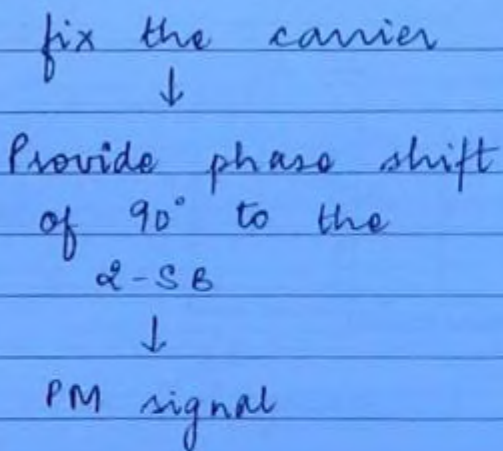 fix the carrier
↓
Provide phase shift
of 90° to the
2-SB
↓
PM signal